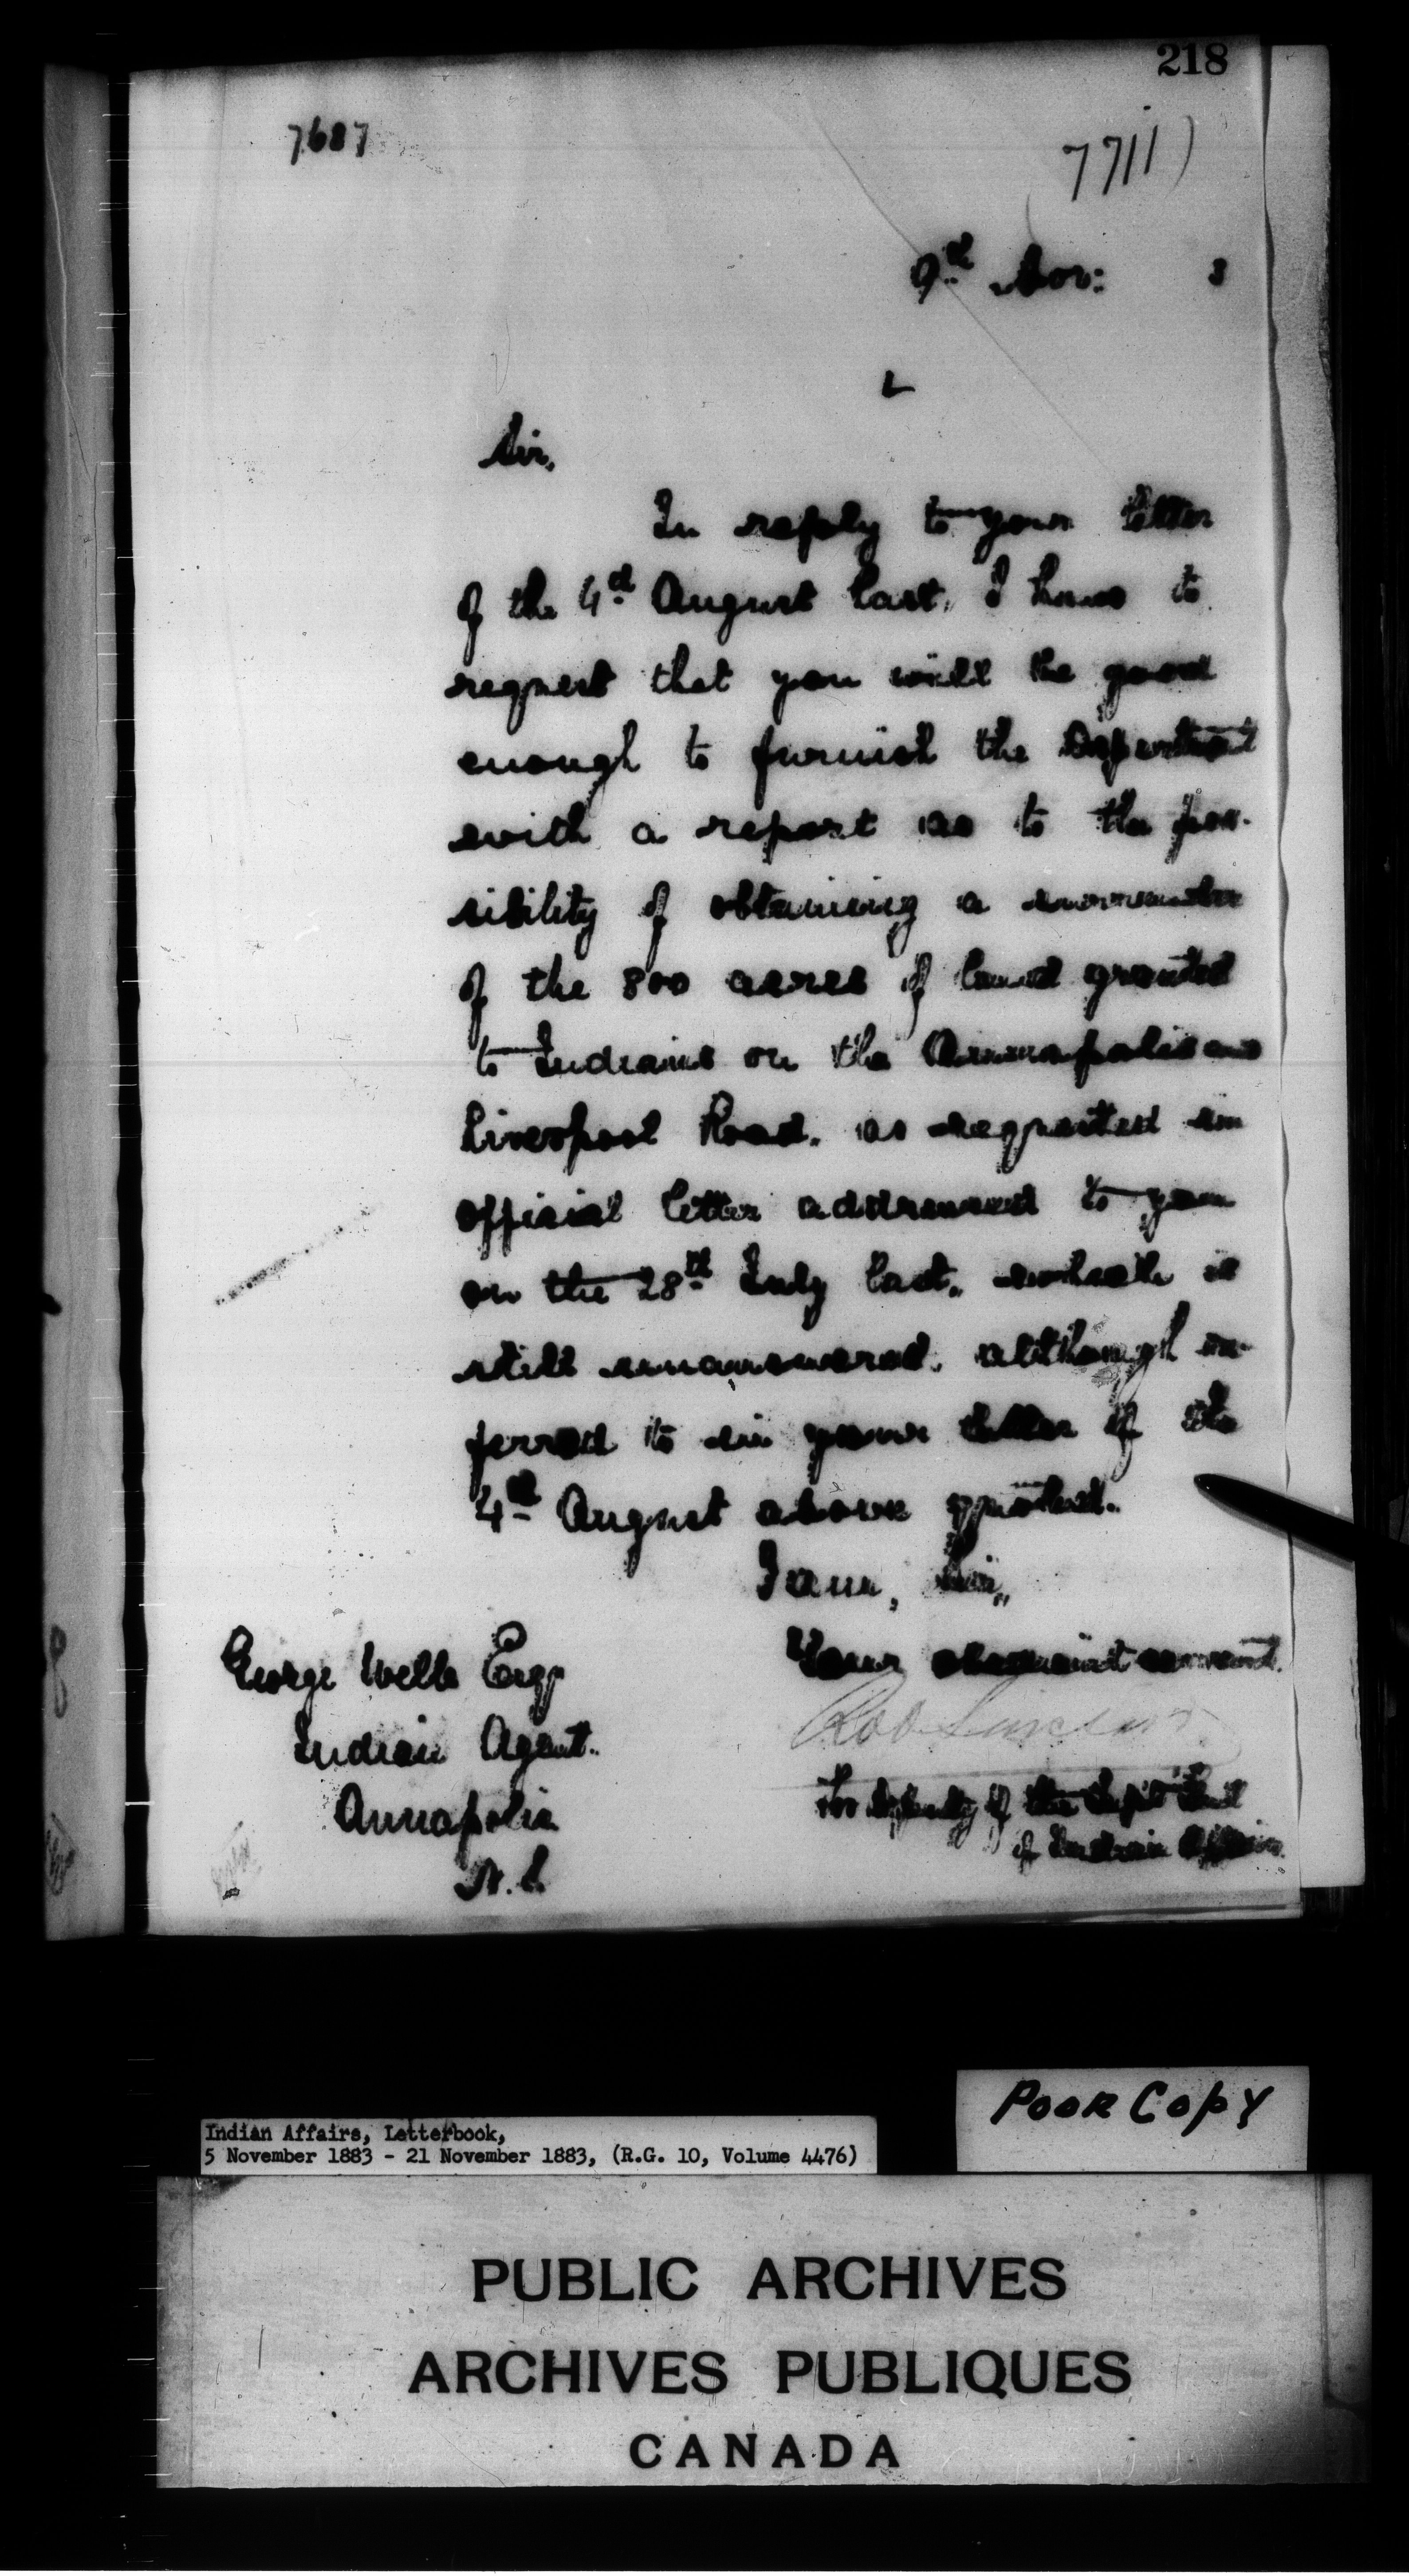 218
7687
7711)
9th Nov: 3
L
Sir,
In reply to your letter
of the 4th August last, I have to
request that you will be good
enough to furnish the Department
with a report as to the pos-
sibility of obtaining a surrender
of the 800 acres of land granted
to Indians on the Annapolis and
Liverpool Road. as requested in
official letter addressed to you
on the 28th July last, which is
still unanswered. although re-
ferred to in your letter of the
4th August above quoted.
I am, Sir,
Your obedient servant.
George Wells Esqr
Indian Agent.
Annapolis
N.S.
Rob Sinclair
For Deputy of the Supt Genl
of Indian Affairs.
POOR COPY
Indian Affairs, Letterbook,
5 November 1883 - 21 November 1883, (R.G. 10, Volume 4476)
PUBLIC ARCHIVES
ARCHIVES PUBLIQUES
CANADA